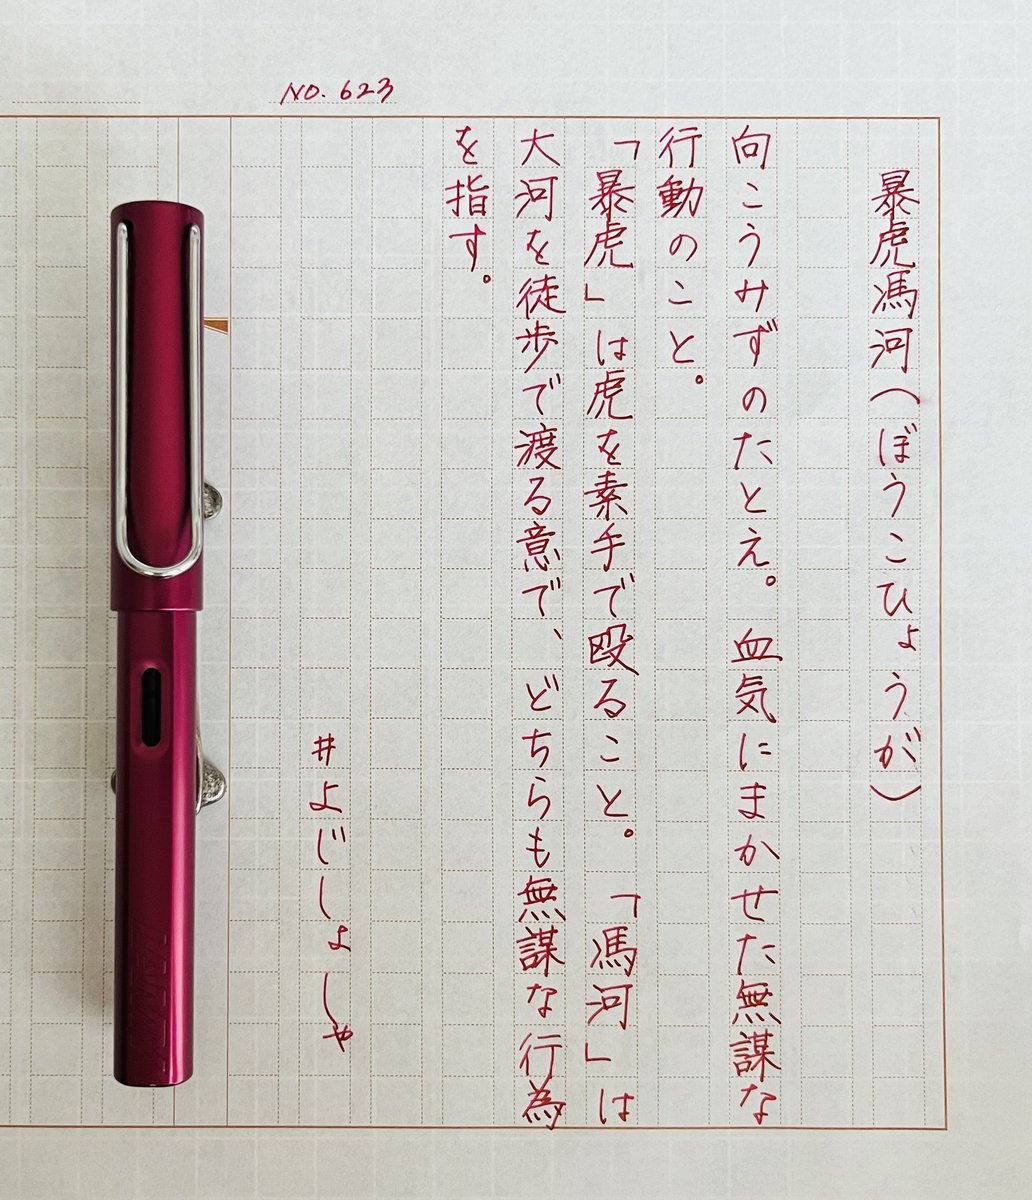 NO. 623
暴虎馮河(ぼうこひょうが)
向こうみずのたとえ。血気にまかせた無謀な
行動のこと。
「暴虎」は虎を素手で殴ること。「馮河」は
大河を徒歩で渡る意で、どちらも無謀な行為
を指す。
#よじしょしゃ
LAMY